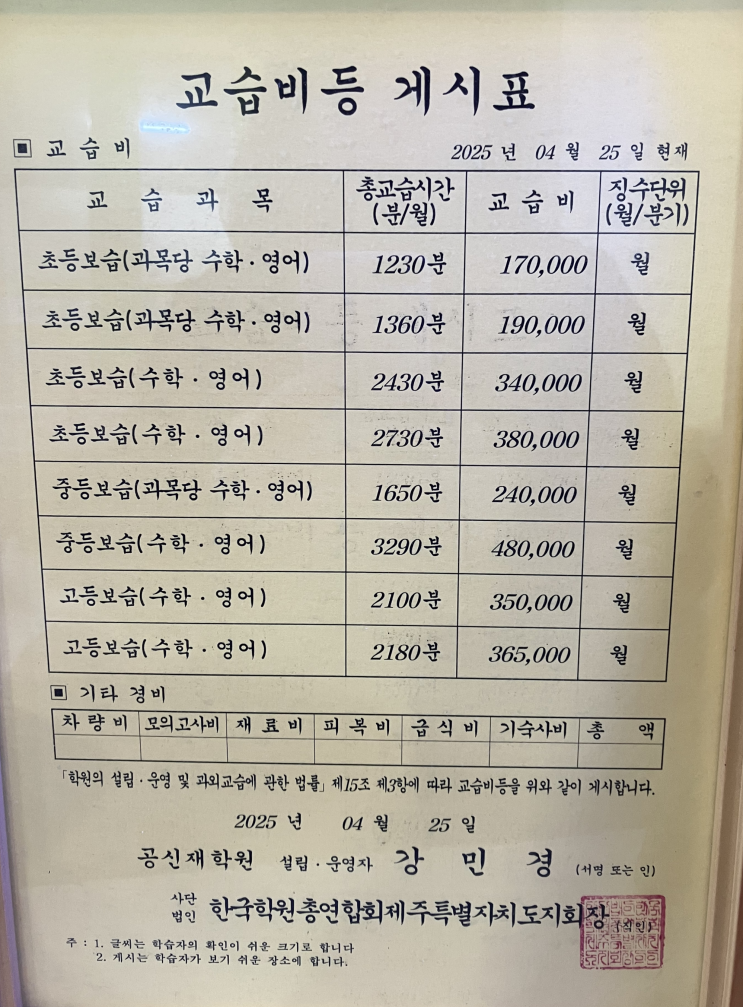 교습비등 게시표
▣ 교 습 비 2025 년 04 월 25 일 현재
교 습 과 목 총교습시간 (분/월) 교 습 비 징수단위 (월/분기)
초등보습(과목당 수학·영어) 1230분 170,000 월
초등보습(과목당 수학·영어) 1360분 190,000 월
초등보습(수학·영어) 2430분 340,000 월
초등보습(수학·영어) 2730분 380,000 월
중등보습(과목당 수학·영어) 1650분 240,000 월
중등보습(수학·영어) 3290분 480,000 월
고등보습(수학·영어) 2100분 350,000 월
고등보습(수학·영어) 2180분 365,000 월
▣ 기타 경비
차 량 비 모의고사비 재 료 비 피 복 비 급 식 비 기숙사비 총 액
「학원의 설립·운영 및 과외교습에 관한 법률」 제15조 제3항에 따라 교습비등을 위와 같이 게시합니다.
2025 년 04 월 25 일
공신재학원 설립·운영자 강 민 경 (서명 또는 인)
사단법인 한국학원총연합회제주특별자치도지회장 (직인)
주 : 1. 글씨는 학습자의 확인이 쉬운 크기로 합니다
2. 게시는 학습자가 보기 쉬운 장소에 합니다.